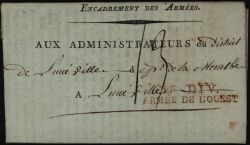 ENCADREMENT DES ARMÉES.
AUX ADMINISTRATEURS du district
de Lunéville dépt de la Meurthe
A Lunéville
DIV.
ARMÉE DE L'OUEST